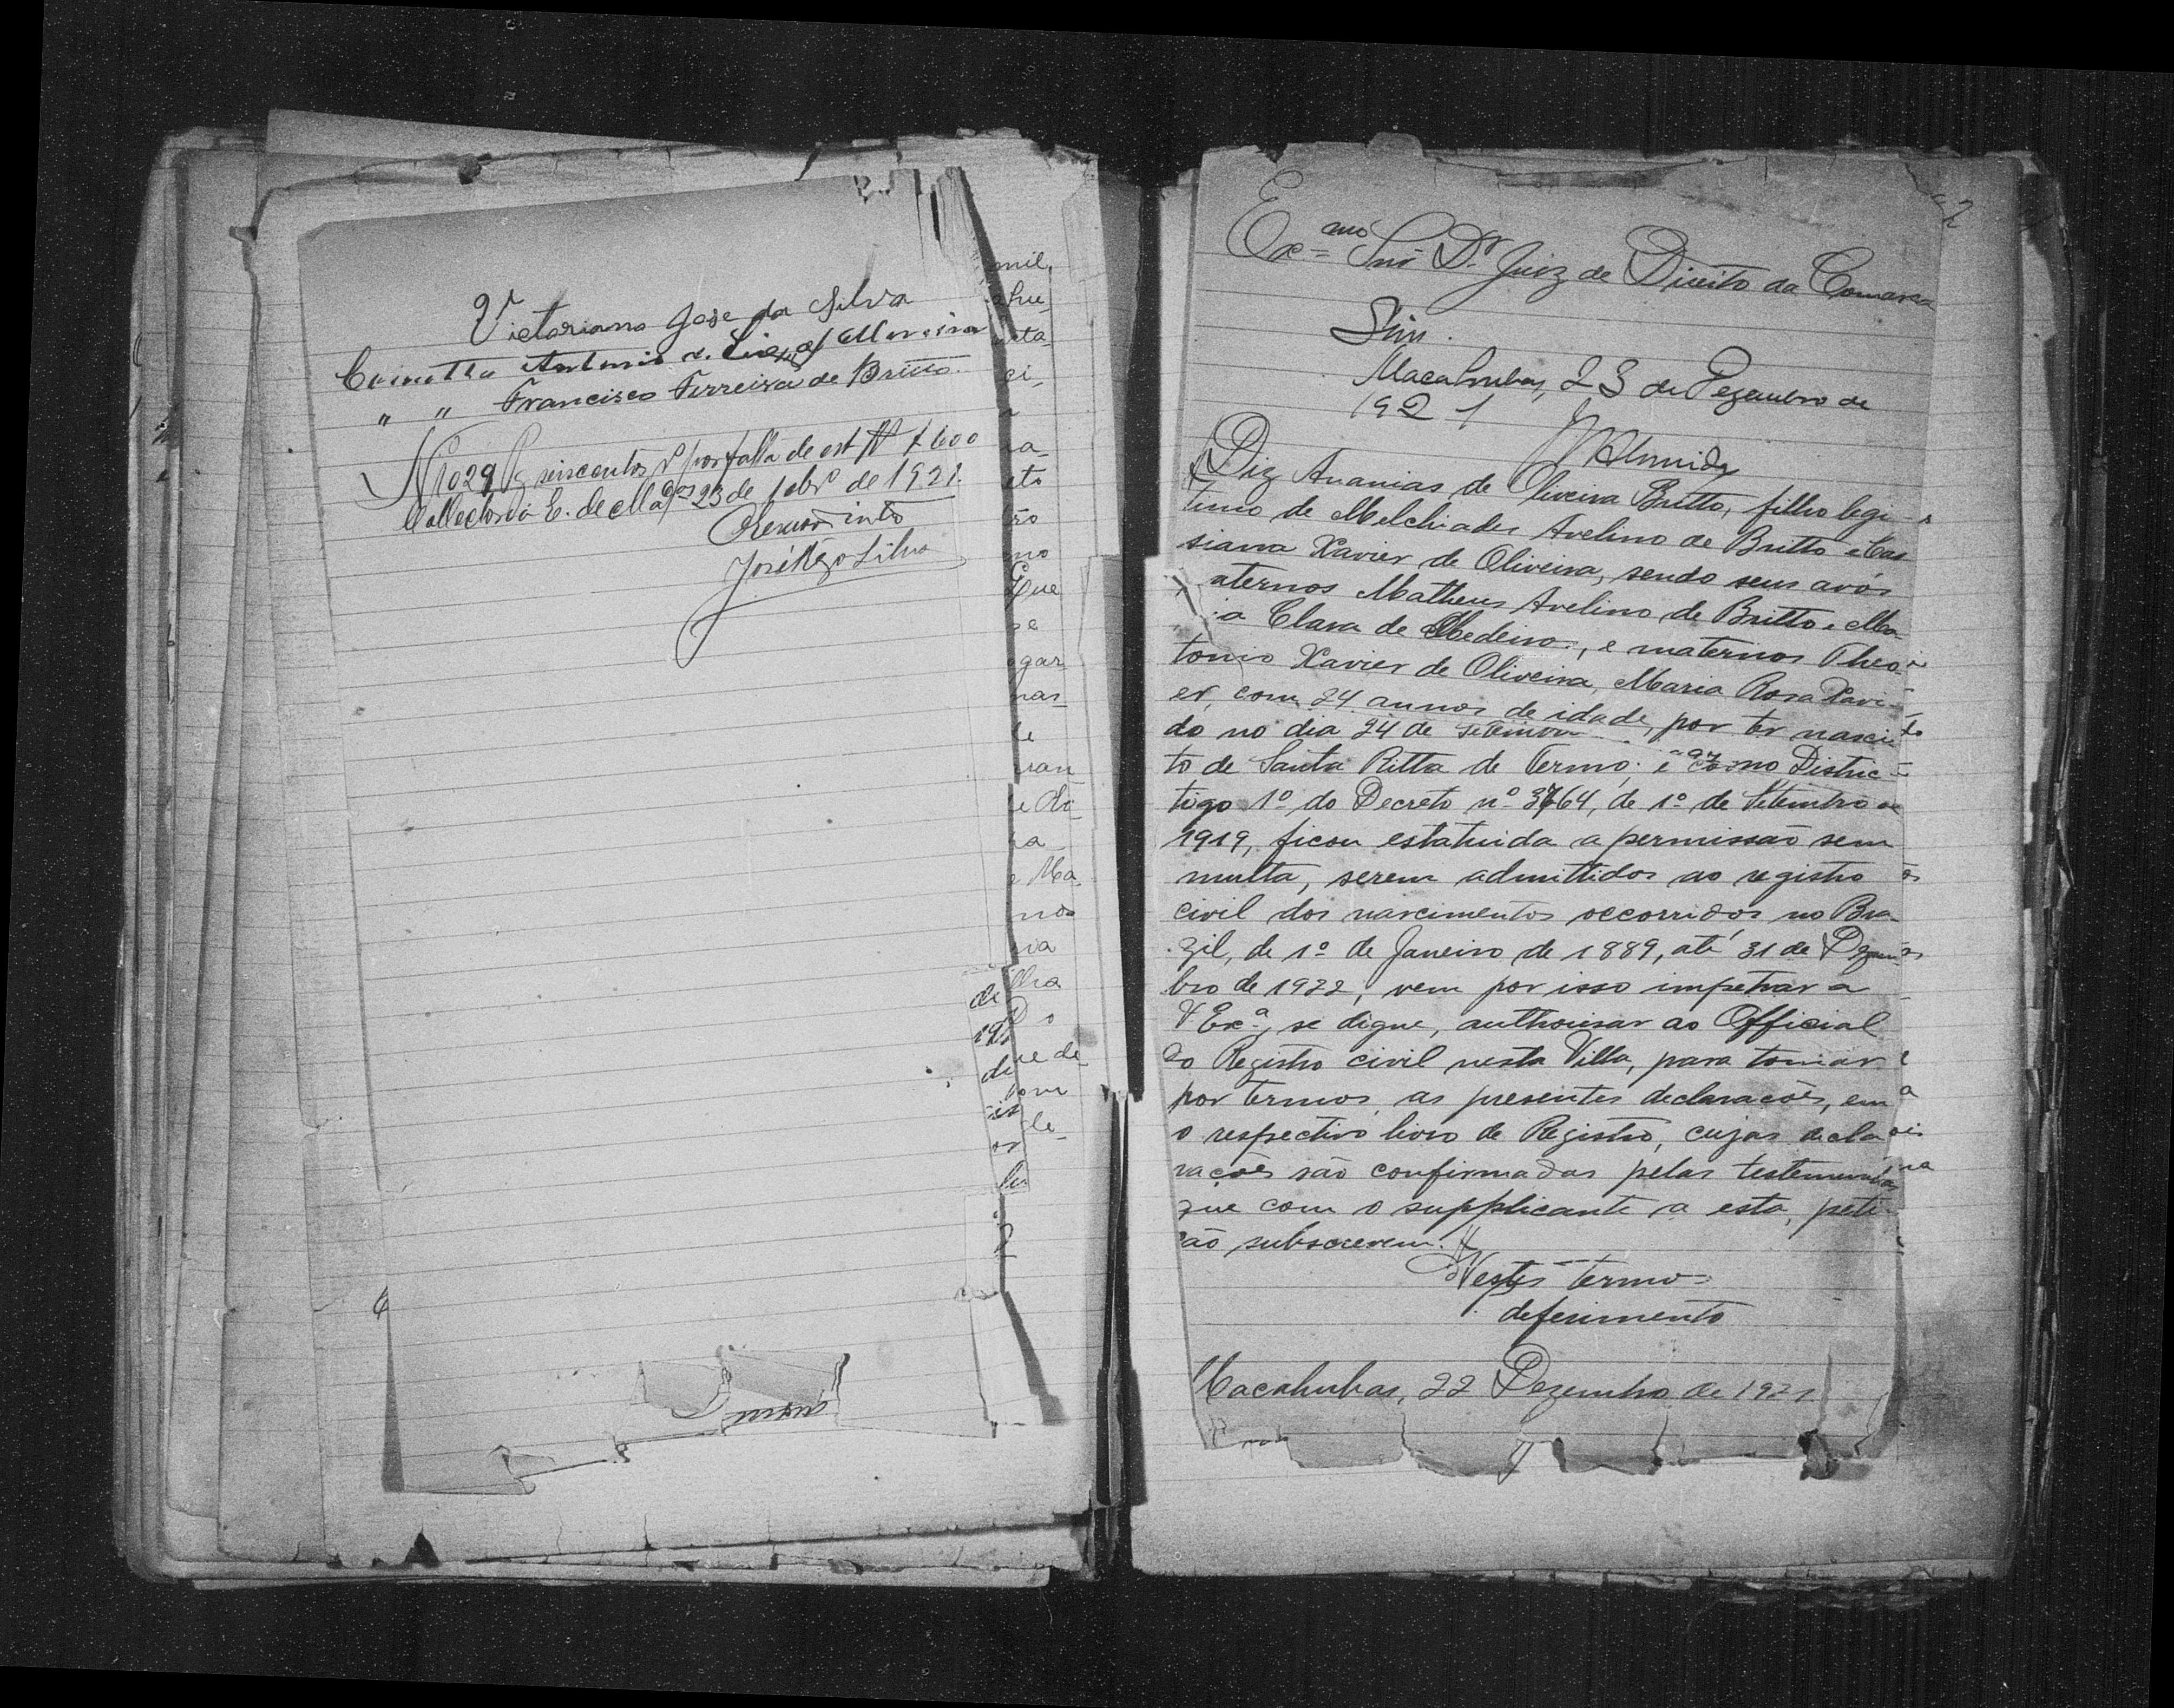 Victoriano José da Silva
Como tta Antonio
" " Francisco Ferreira de Britto
N 1029 Pg seiscentos rs por falta de est
Collectoria E. de 23 de de 1921.
José Silva
mil,
ci,
ra
eto
mo
Que
se
ogar
nas
van
ra
e Ma
nos
lha
ue de
2
Exmo Snr Dr Juiz de Direito da Comarca
Sim.
Macahubas, 23 de Dezembro de
1921
Almeida
Diz Ananias de Oliveira Britto, filho legi
timo de Melchiades Avelino de Britto e Cas
siana Xavier de Oliveira, sendo seus avós
aternos Matheus Avelino de Britto e Ma
ia Clara de Medeiros, e maternos Theo
tonio Xavier de Oliveira, Maria Rosa Xavi
er, com 24 annos de idade, por ter nasci
do no dia 24 de Setembro
to de Santa Ritta de Termo; e como Distric
tigo 1º do Decreto nº 3764, de 1º de Setembro de
1919, ficou estatuida a permissão sem
multa, serem admittidos ao registro
civil dos nascimentos occorridos no Bra
zil, de 1º de Janeiro de 1889, até 31 de Dezem
bro de 1922, vem por isso impetrar a
V Exª, se digne, authorisar ao Official
do Registro civil nesta Villa, para tomar
por termos as presentes declaracões, em
o respectivo livro de Registro, cujas decla
rações são confirmadas pelas testemunhas
que com o supplicante a esta, peti
ção subscrevem.
Nestes termos
deferimento
Macahubas, 22 Dezembro de 1921